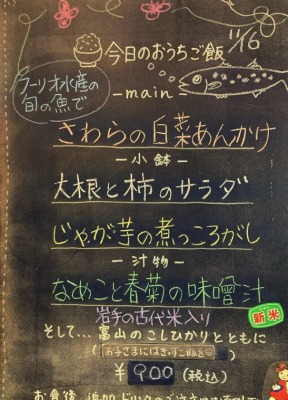 今日のおうちご飯
11/16
フーリオ水産の
旬の魚で
-main-
さわらの白菜あんかけ
-小鉢-
大根と柿のサラダ
じゃが芋の煮っころがし
-汁物-
なめこと春菊の味噌汁
岩手の古代米入り
新米
そして…富山のこしひかりとともに
(お子さまにはきっずご飯を☺)
¥900(税込)
お食後 追加ドリンク